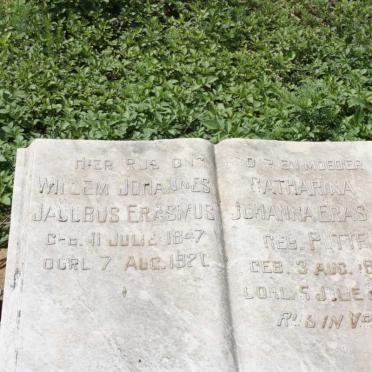 HIER RUS ONS
WILLEM JOHANNES
JACOBUS ERASMUS
GEB. 11 JULIE 1847
OORL 7 AUG. 192
DIEN MOEDER
CATHARINA
JOHANNA ERAS
GEB. 3 AUG. 18
OORL. 5 JULIE
RUS IN VR